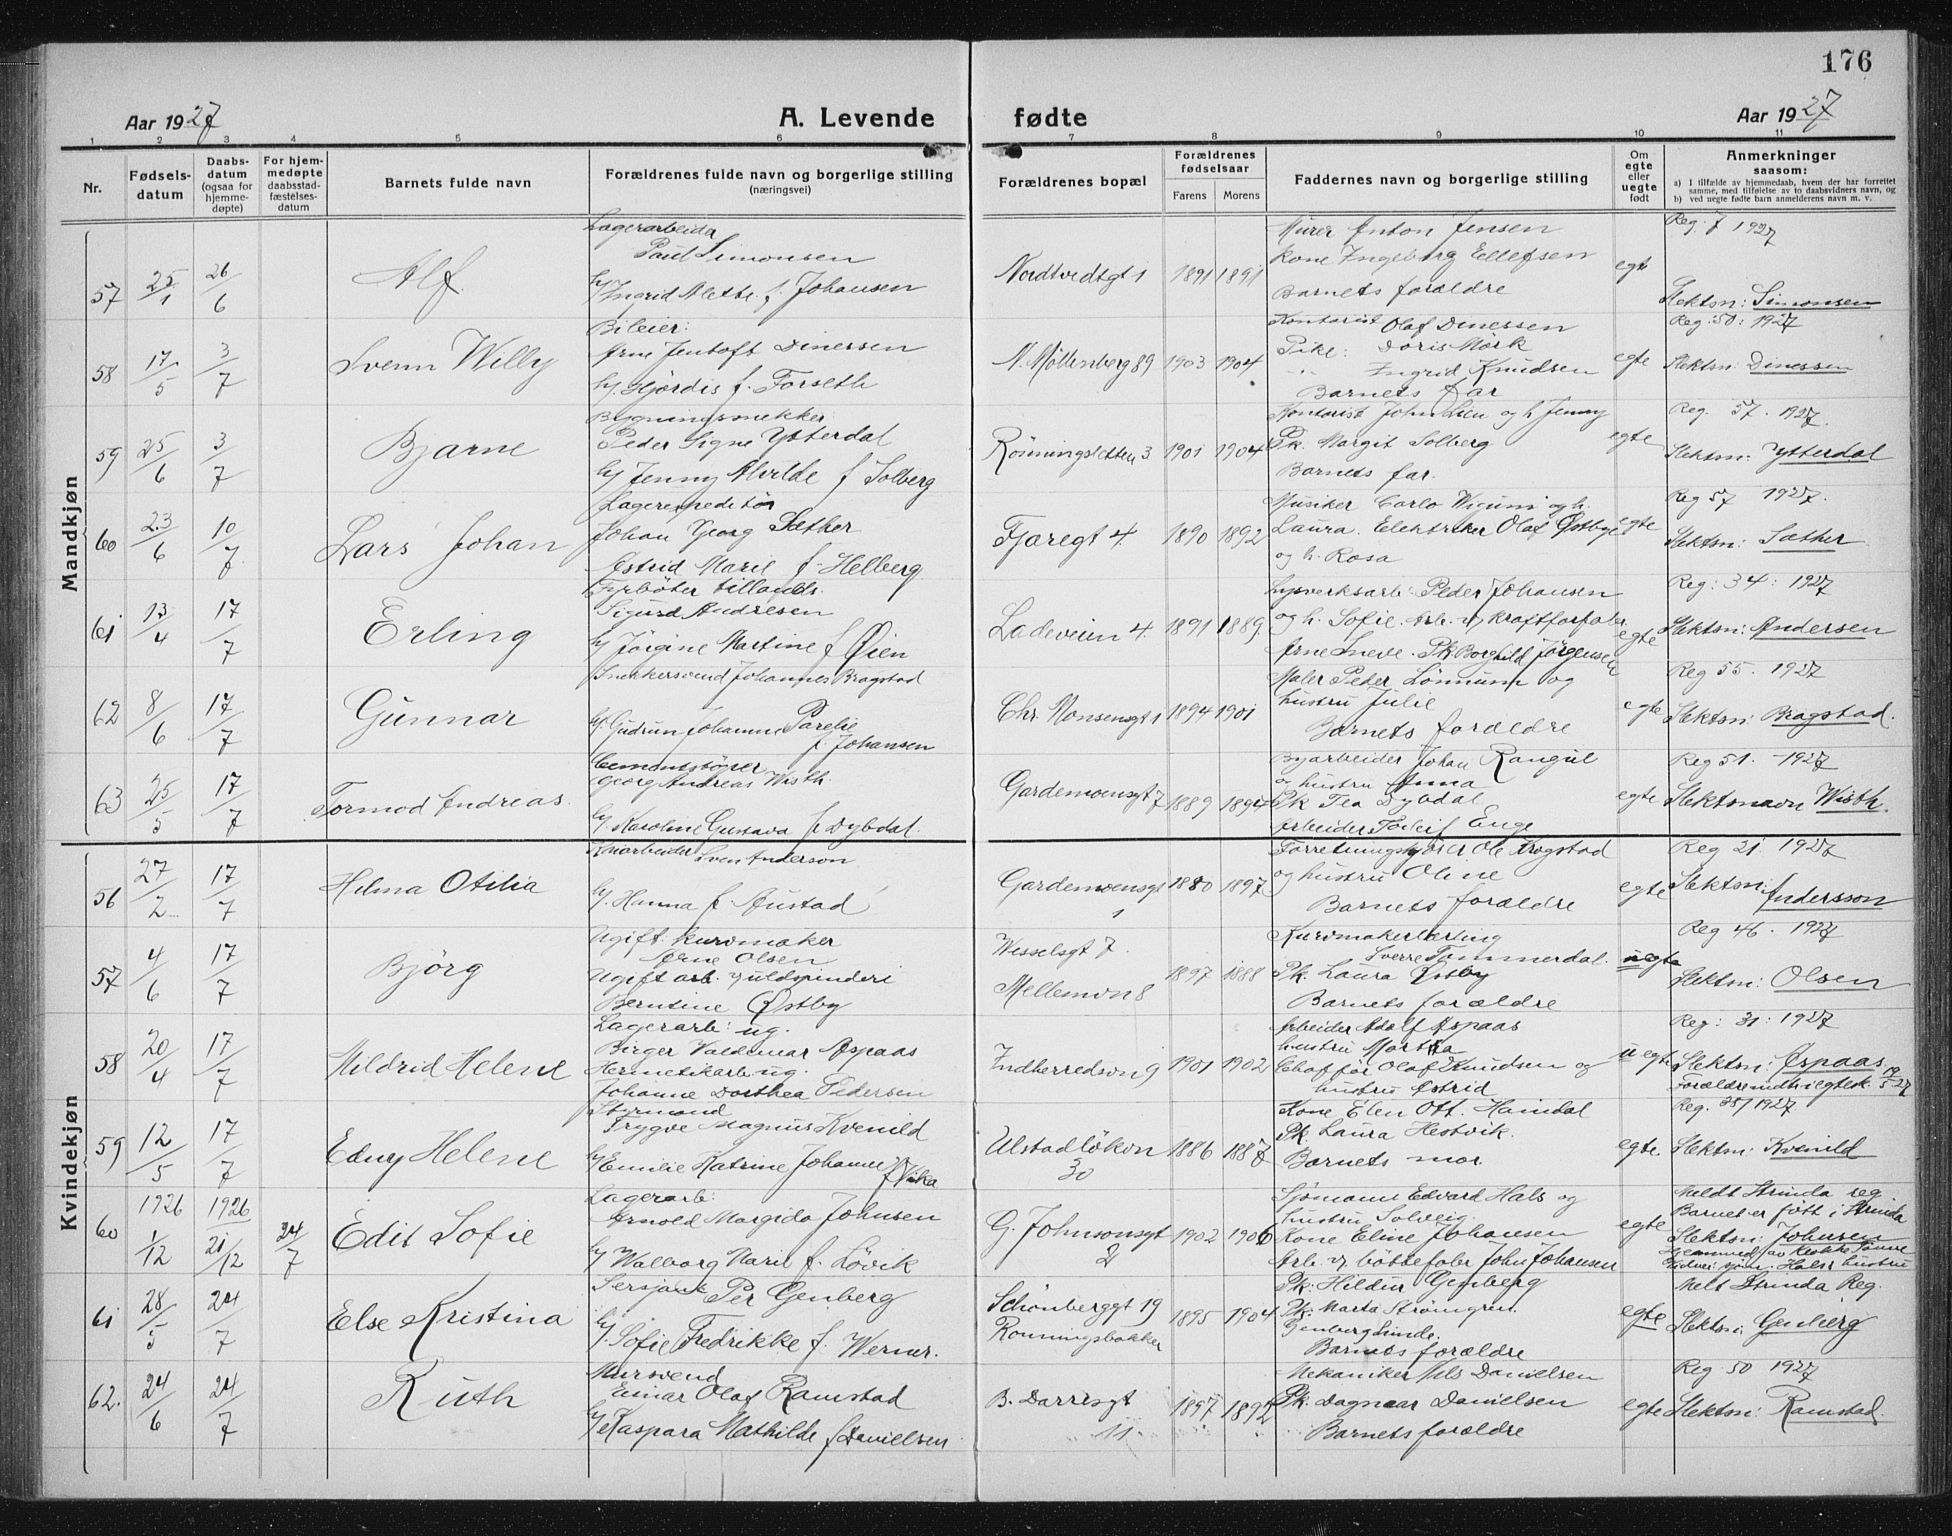 176
Aar 1927
A. Levende fødte
Aar 1927
1 2 3 4 5 6 7 8 9 10 11
Nr.
Fødsels-
datum
Daabs-
datum
(ogsaa for
hjemme-
døpte)
For hjem-
medøpte
daabsstad-
fæstelses-
datum
Barnets fulde navn
Forældrenes fulde navn og borgerlige stilling
(næringsvei)
Forældrenes bopæl
Forældrenes
fødselsaar
Farens
Morens
Faddernes navn og borgerlige stilling
Om
egte
eller
uegte
født
Anmerkninger
saasom:
a) I tilfælde av hjemmedaab, hvem der har forrettet
samme, med tilføielse av to daabsvidners navn, og
b) ved uegte fødte barn anmelderens navn m. v.
Mandkjøn
57 25/1 26/6 Alf
Lagerarbeider
Paul Simonsen
h/ Ingrid Alette f. Johansen
Nordtvedtgt 1 1891 1891
Murer Anton Jensen
Kone Ingeborg Ellefsen
Barnets forældre
egte
Reg. 7 1927
Slektsn: Simonsen
58 17/5 3/7 Svenn Willy
Bileier:
Arne Jentoft Dinessen
h/ Hjördis f. Forseth
N. Möllenberg 89 1903 1904
Kontorist Olaf Dinessen
Pike: Doris Mörk
" Ingrid Knudsen
Barnets far
egte
Reg. 50: 1927
Slektsn: Dinessen
59 25/6 3/7 Bjarne
Bygningssnekker
Peder Signe Ytterdal
h/ Jenny Alvilde f Solberg
Rönningsletten 3 1901 1904
Kontorist John Lien og h Jenny
Pk. Margit Solberg
Barnets far.
egte
Reg. 57. 1927.
Slektsn: Ytterdal
60 23/6 10/7 Lars Johan
Lagerexpeditör
Johan Georg Sæther
Astrid Marie f. Helberg
Fjæregt 4. 1890 1892
Musiker Carlo Wicum og h.
Laura. Elektriker Olaf Østbye
og h. Rosa
egte
Reg 57 1927.
Slektsn: Sæther
61 13/4 17/7 Erling
Fyrböter
Sigurd Andresen
h/ Jörgine Martine f Øien
Ladeveien 4. 1891 1889.
Lysverksarb. Peder Johansen
og h. Sofie. Arb. v/ kraftforfabr
Arne Sneve. Pk. Borghild Jörgensen
egte
Reg: 34: 1927
Slektsn: Andersen
62 8/6 17/7 Gunnar
Snekkersvend Johannes Bragstad
h/ Gudrun Johanne Parelie
f. Johansen
Chr. Monsensgt 1 1894 1901
Maler Peter Lönnum og
hustru Julie
Barnets forældre
egte
Reg 55. 1927
Slektsn: Bragstad.
63 25/5 17/7 Tormod Andreas.
Cementstöper
Georg Andreas Wisth.
h/ Karoline Gustava f Dybdal.
Gardemoensgt 7 1889 1894
Byarbeider Johan Rangul
og hustru Anna
Pk Tea Dybdal
Arbeider Torleif Enge
egte
Reg 51. 1927
Slektsnavn Wisth.
Kvindekjøn
56 27/2 17/7 Hilma Otilia
Sven Anderson
h/. Hanna f Austad
Gardemoensgt
1 1880 1897
Forretningsförer Ole Krogstad
og hustru Oline
Barnets forældre
egte
Reg 21. 1927
Slektsn: Andersson
57 4/6 17/7 Björg
Ugift. kurvmaker
Arne Olsen
Ugift arb. v/ uldspinderi
Berntine Østby
Wesselsgt 7.
Mellemön 8 1897 1888
Kurvmakerlærling
Sverre Tömmerdal.
Pk. Laura Østby
Barnets forældre
uegte
Reg 46. 1927
Slektsn: Olsen
58 20/4 17/7 Mildrid Helene
Lagerarb: ug.
Birger Valdemar Aspaas
Hermetikarb. ug.
Johanne Dorthea Pedersen
Indherredsvn 9 1901 1902
Arbeider Adolf Aspaas
hustru Martha
Chafför Olaf Knudsen og
hustru Astrid
uegte
Reg: 31: 1927
Slektsn: Aspaas
Forældre indh i egtesk. 19/5 27
59 12/5 17/7 Edny Helene
Styrmand
Trygve Magnus Kvenild
h/ Emilie Katrine Johanne f Vika
Ulstadlökvn
30 1886 1887
Kone Elen Ott. Hamdal
Pk. Laura Hestvik.
Barnets mor.
egte.
Reg. 38/1927
Slektsn: Kvenild
60 1926 1/12 1926 21/12 24/7 Edit Sofie
Lagerarb:
Arnold Margido Johnsen
h/ Walborg Marie f. Lövik
G. Johnsonsgt
2 1902 1906
Sjömann Edvard Hals og
hustru Solveig.
Kone Eline Johansen
Arb. v/ böttefabr John Johansen
egte
Meldt Strinda reg.
Barnet er födt i Strinda
Slektsn: Johnsen
61 28/5 24/7 Else Kristina
Sersjant Per Genberg
h/. Sofie Fredrikke f. Werner.
Schönberggt 19
Rönningsbakken 1895 1904
Pk: Hildur Genberg
Pk: Marta Strömgren.
Barnets forældre
egte
Melt Strinda Reg.
Slektsn: Genberg
62. 24/6 24/7 Ruth
Mursvend
Einar Olaf Ramstad
h/ Kaspara Mathilde f Danielsen
B. Darresgt
11. 1897 1892
Mekaniker Nils Danielsen
Pk. Dagmar Danielsen
Barnets forældre
egte
Reg 50 1927
Slektsn: Ramstad.